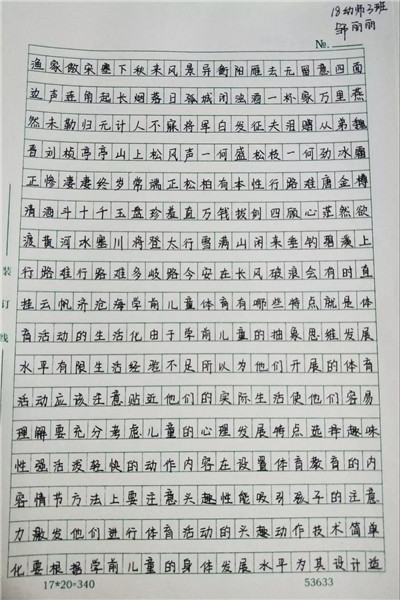 18幼师3班
邹丽丽
№.
渔家傲宋塞下秋来风景异衡阳雁去无留意四面
边声连角起长烟落日孤城闭浊酒一杯家万里燕
然未勒归无计人不寐将军白发征夫泪赠从弟魏
晋刘桢亭亭山上松风声一何盛松枝一何劲冰霜
正惨凄凄终岁常端正松柏有本性行路难唐金樽
清酒斗十千玉盘珍羞直万钱拔剑四顾心茫然欲
渡黄河冰塞川将登太行雪满山闲来垂钓碧溪上
行路难行路难多岐路今安在长风破浪会有时直
挂云帆济沧海学前儿童体育有哪些特点就是体
育活动的生活化由于学前儿童的抽象思维发展
水平有限生活经验不足所以为他们开展的体育
活动应该注意贴近他们的实际生活使他们容易
理解要充分考虑儿童的心理发展特点选择趣味
性强活泼轻快的动作内容在设置体育教育的内
容情节方法上要注意兴趣性能吸引孩子的注意
力激发他们进行体育活动的兴趣动作技术简单
化要根据学前儿童的身体发展水平为其设计造
装
订
线
17*20=340 53633